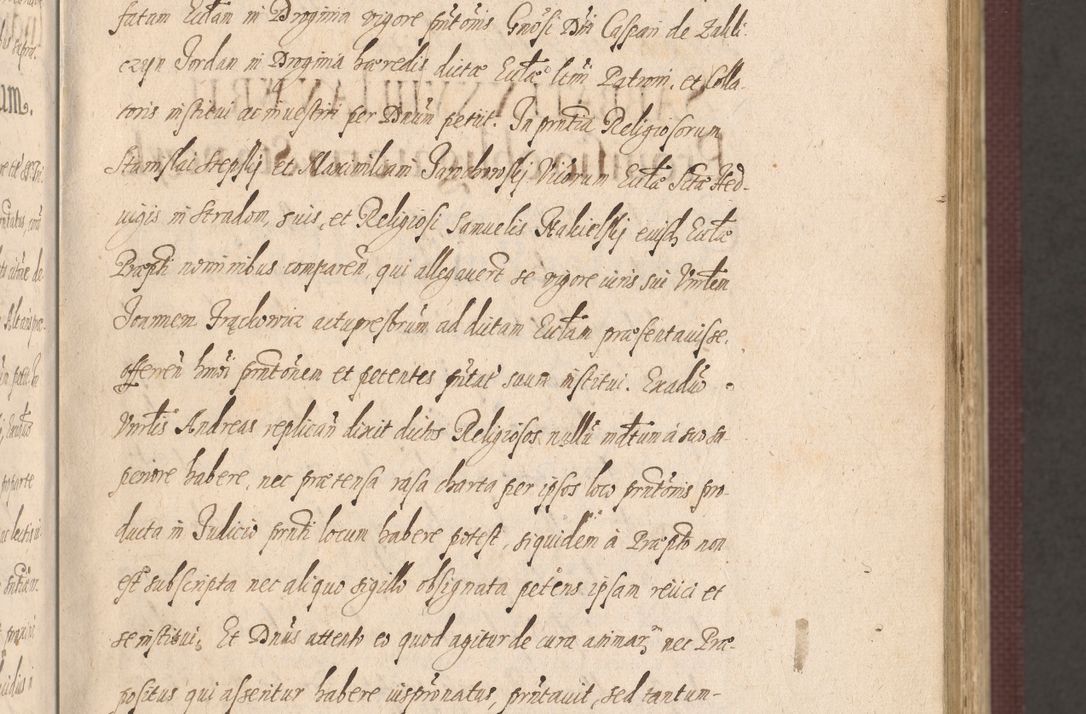 fatam Ecclam in Droginia vigore pntonis Gnosi Dni Caspari de Zakli
czyn Jordan in Droginia haeredis dictae Eclae ltmi Patroni, et Colla-
toris institui ac investiri per Dnum petiit. In pntia Religiosorum
Stanislai Stepskij et Maximiliani Jaroborskij Vicorum Eclae Sctae Hed-
uigis in Stradom, suis, et Religiosi Samuelis Nakielskij eiusd Eclae
Praepti nominibus comparen, qui allegauert se vigore iuris sui Vnrlem
Joannem Frąckowicz actu presbrum ad dictam Ecclam praesentauisse,
offeren hmoi prntonem et petentes pntat suum institui. Ex adu°
Vnrlis Andreas replican dixit dictos Religiosos nullu mdtum à suo su-
periore habere, nec praetensa rasa charta per ipsos loco prntonis pro-
ducta in Judicio prnti locum habere potest, siquidem à Praepto non
est subscripta nec aliquo sigillo obsignata petens ipsam reiici et
se institui, Et Dnus attento eo quod agitur de cura animar nec Prae-
positus qui asseritur habere iuspronatus, prntauit, sed tantum-